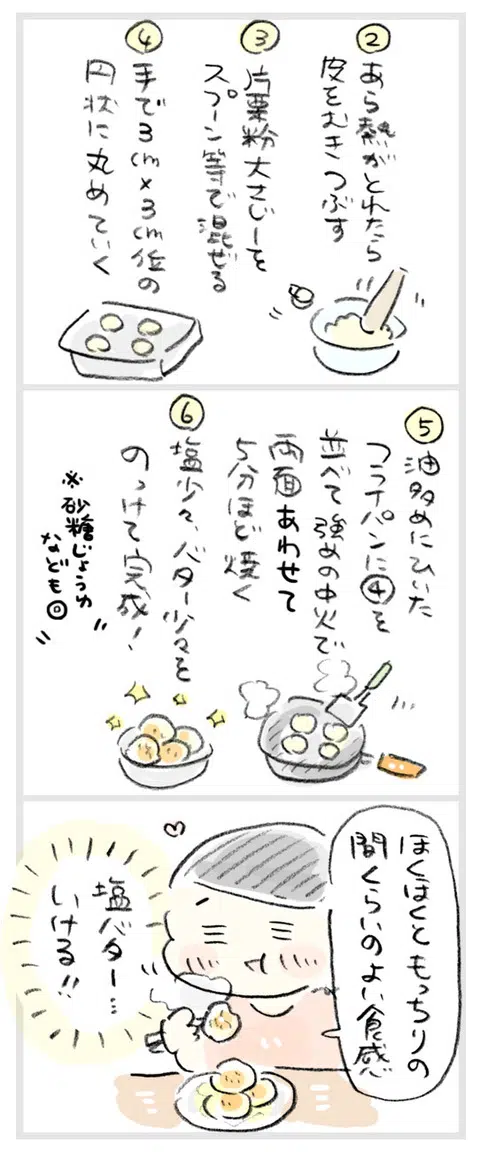 ②
あら熱がとれたら
皮をむきつぶす
③
片栗粉大さじ一を
スプーン等で混ぜる
④
手で3cm×3cm位の
円状に丸めていく
⑤
油多めにひいた
フライパンに④を
並べて強めの中火で
両面あわせて
5分ほど焼く
⑥
塩少々、バター少々を
のっけて完成!
※砂糖じょうゆ
なども◎
ほくほくともっちりの
間くらいのよい食感
塩バター…
いける!!